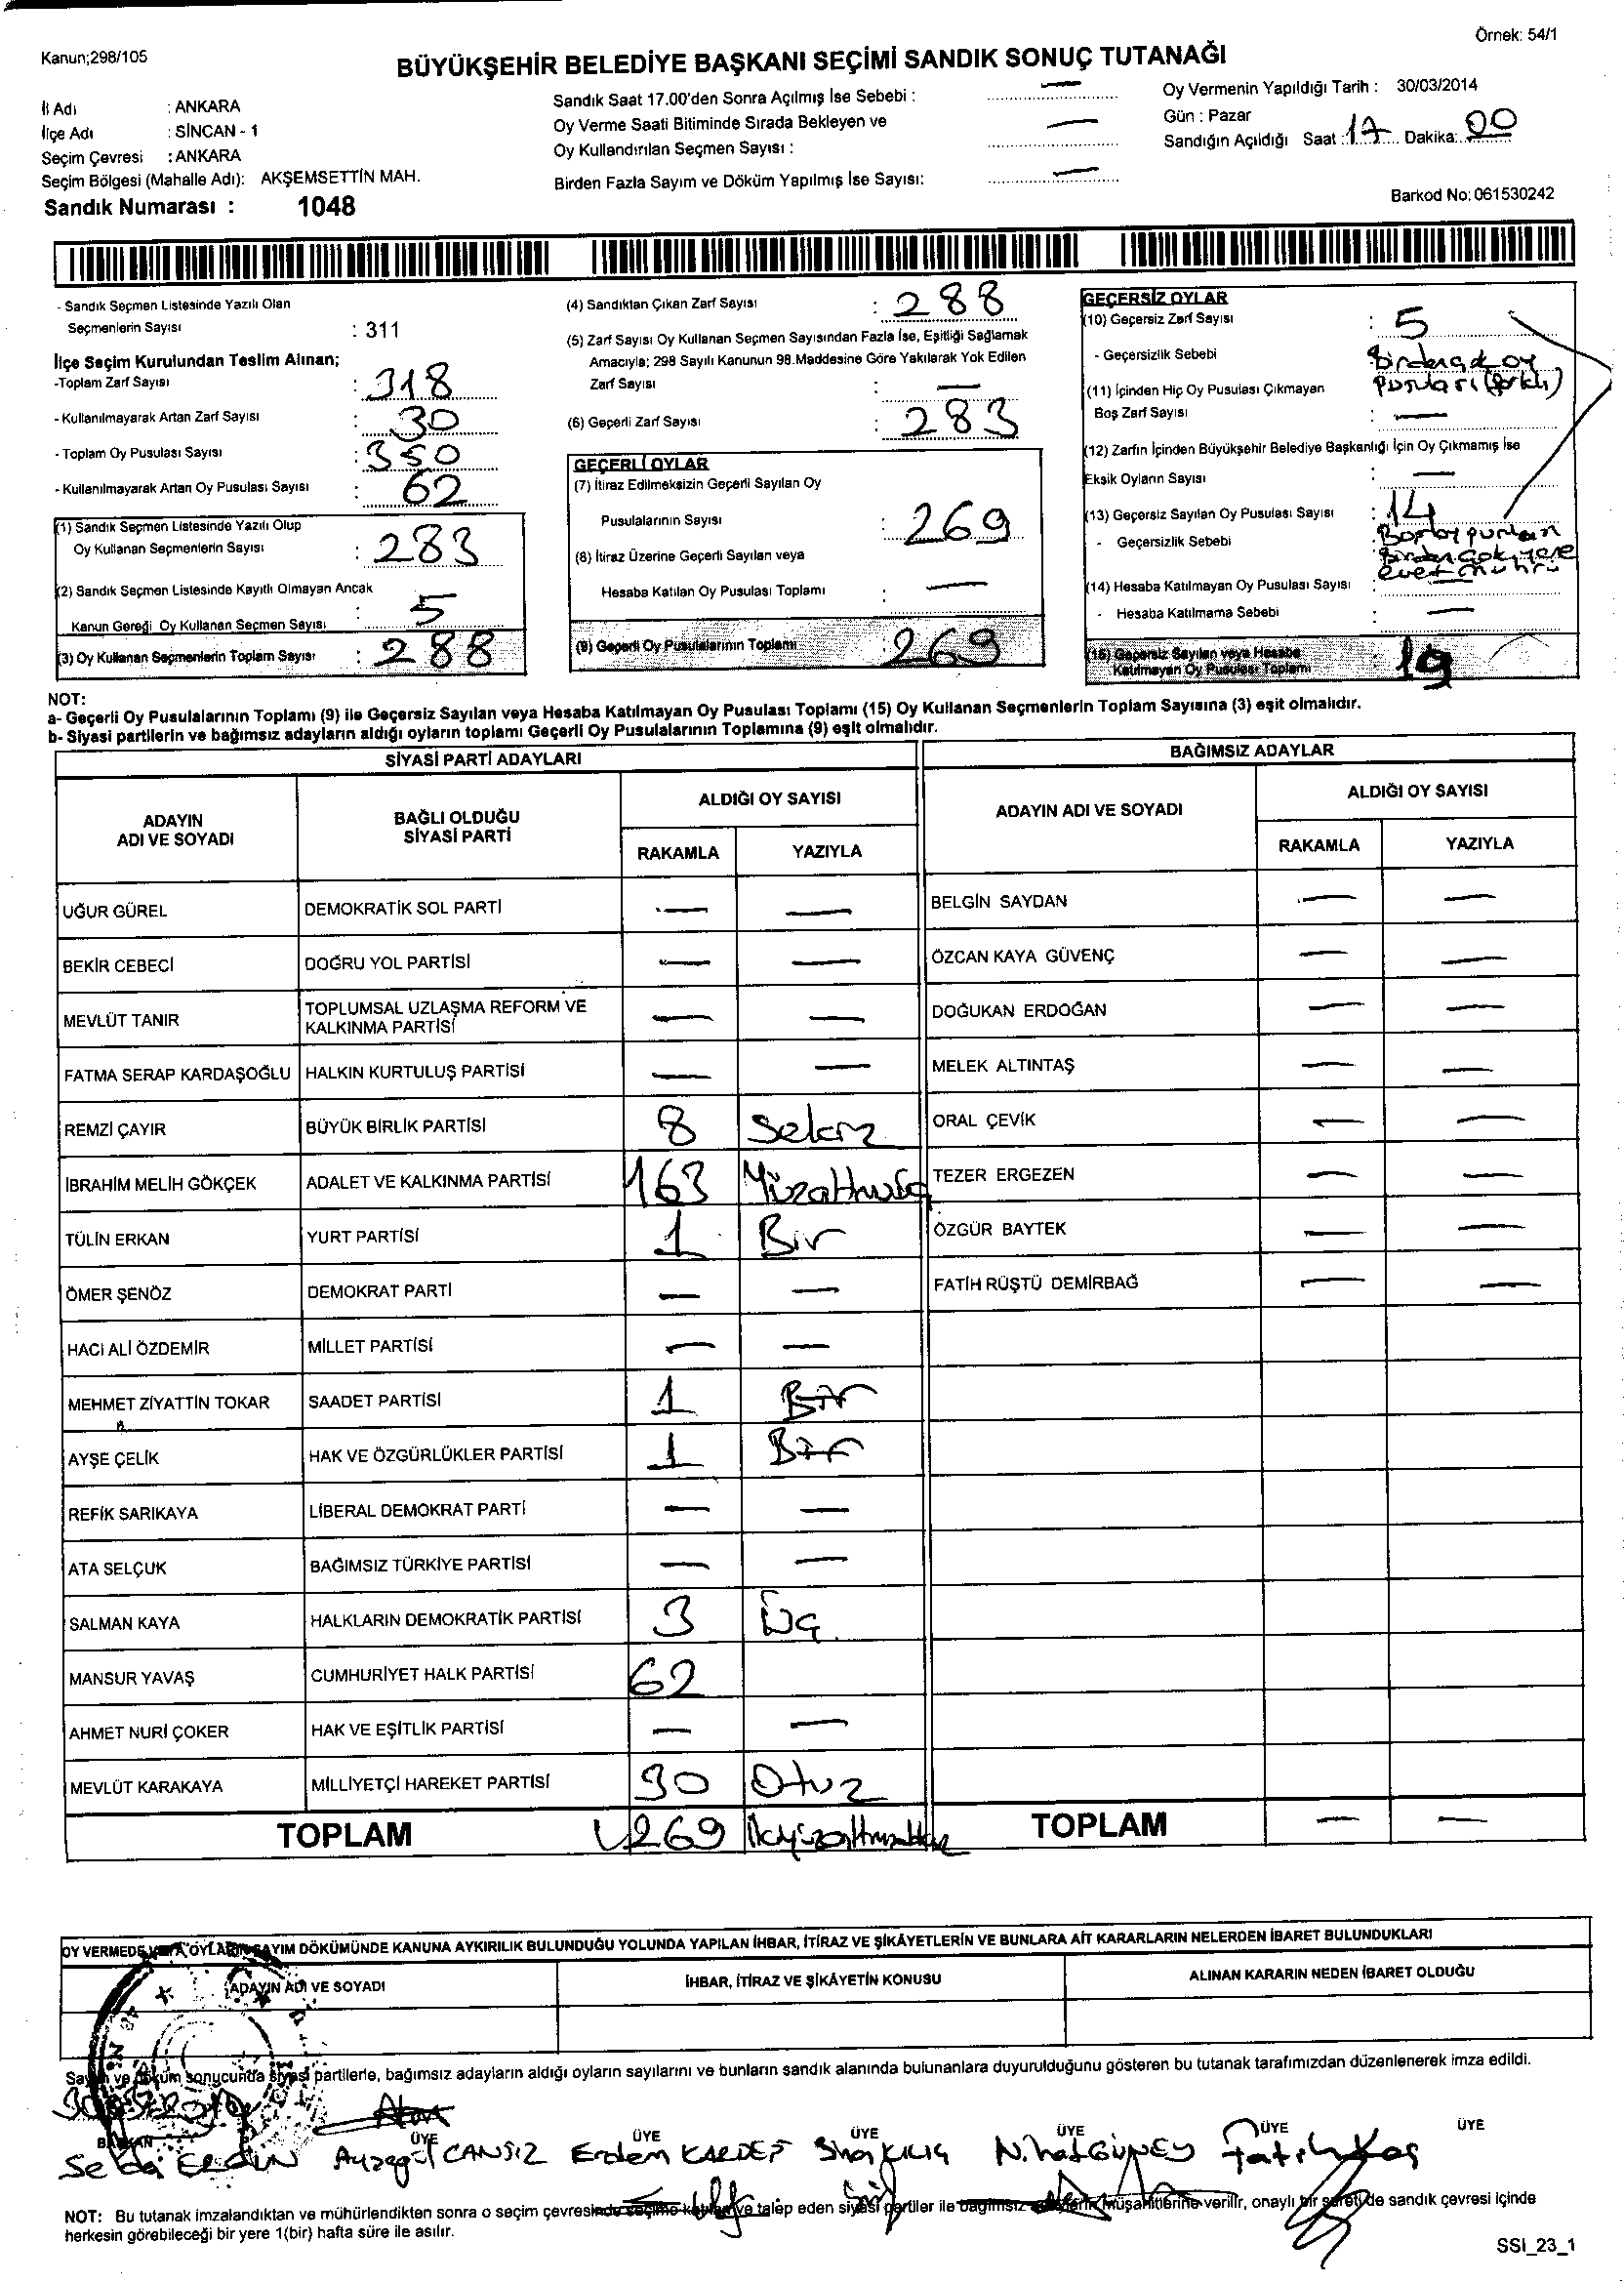 Örnek: 54/1
Kanun;298/105
BÜYÜKŞEHİR BELEDİYE BAŞKANI SEÇİMİ SANDIK SONUÇ TUTANAĞI
İl Adı : ANKARA
İlçe Adı : SİNCAN - 1
Seçim Çevresi : ANKARA
Seçim Bölgesi (Mahalle Adı): AKŞEMSETTİN MAH.
Sandık Numarası : 1048
Sandık Saat 17.00'den Sonra Açılmış İse Sebebi : —
Oy Verme Saati Bitiminde Sırada Bekleyen ve
Oy Kullandırılan Seçmen Sayısı : —
Birden Fazla Sayım ve Döküm Yapılmış İse Sayısı: —
Oy Vermenin Yapıldığı Tarih : 30/03/2014
Gün : Pazar
Sandığın Açıldığı Saat : 17 Dakika: 00
Barkod No: 061530242
- Sandık Seçmen Listesinde Yazılı Olan
Seçmenlerin Sayısı : 311
İlçe Seçim Kurulundan Teslim Alınan;
-Toplam Zarf Sayısı : 318
- Kullanılmayarak Artan Zarf Sayısı : 30
- Toplam Oy Pusulası Sayısı : 350
- Kullanılmayarak Artan Oy Pusulası Sayısı : 62
(1) Sandık Seçmen Listesinde Yazılı Olup
Oy Kullanan Seçmenlerin Sayısı : 283
(2) Sandık Seçmen Listesinde Kayıtlı Olmayan Ancak
Kanun Gereği Oy Kullanan Seçmen Sayısı : 5
(3) Oy Kullanan Seçmenlerin Toplam Sayısı : 288
(4) Sandıktan Çıkan Zarf Sayısı : 288
(5) Zarf Sayısı Oy Kullanan Seçmen Sayısından Fazla İse, Eşitliği Sağlamak
Amacıyla; 298 Sayılı Kanunun 98.Maddesine Göre Yakılarak Yok Edilen
Zarf Sayısı : —
(6) Geçerli Zarf Sayısı : 283
GEÇERLİ OYLAR
(7) İtiraz Edilmeksizin Geçerli Sayılan Oy
Pusulalarının Sayısı : 269
(8) İtiraz Üzerine Geçerli Sayılan veya
Hesaba Katılan Oy Pusulası Toplamı : —
(9) Geçerli Oy Pusulalarının Toplamı : 269
GEÇERSİZ OYLAR
(10) Geçersiz Zarf Sayısı : 5
- Geçersizlik Sebebi : Birden çok oy
pusulası (farklı)
(11) İçinden Hiç Oy Pusulası Çıkmayan
Boş Zarf Sayısı : —
(12) Zarfın İçinden Büyükşehir Belediye Başkanlığı İçin Oy Çıkmamış İse
Eksik Oyların Sayısı : —
(13) Geçersiz Sayılan Oy Pusulası Sayısı : 14
- Geçersizlik Sebebi :
Birden çok yere
evet mührü
(14) Hesaba Katılmayan Oy Pusulası Sayısı :
- Hesaba Katılmama Sebebi : —
(15) Geçersiz Sayılan veya Hesaba
Katılmayan Oy Pusulası Toplamı : 19
NOT:
a- Geçerli Oy Pusulalarının Toplamı (9) ile Geçersiz Sayılan veya Hesaba Katılmayan Oy Pusulası Toplamı (15) Oy Kullanan Seçmenlerin Toplam Sayısına (3) eşit olmalıdır.
b- Siyasi partilerin ve bağımsız adayların aldığı oyların toplamı Geçerli Oy Pusulalarının Toplamına (9) eşit olmalıdır.
SİYASİ PARTİ ADAYLARI
ADAYIN ADI VE SOYADI BAĞLI OLDUĞU SİYASİ PARTİ ALDIĞI OY SAYISI
RAKAMLA YAZIYLA
UĞUR GÜREL DEMOKRATİK SOL PARTİ — —
BEKİR CEBECİ DOĞRU YOL PARTİSİ — —
MEVLÜT TANIR TOPLUMSAL UZLAŞMA REFORM VE KALKINMA PARTİSİ — —
FATMA SERAP KARDAŞOĞLU HALKIN KURTULUŞ PARTİSİ — —
REMZİ ÇAYIR BÜYÜK BİRLİK PARTİSİ 8 Sekiz
İBRAHİM MELİH GÖKÇEK ADALET VE KALKINMA PARTİSİ 163 Yüzaltmışüç
TÜLİN ERKAN YURT PARTİSİ 1 Bir
ÖMER ŞENÖZ DEMOKRAT PARTİ — —
HACI ALİ ÖZDEMİR MİLLET PARTİSİ — —
MEHMET ZİYATTİN TOKAR SAADET PARTİSİ 1 Bir
AYŞE ÇELİK HAK VE ÖZGÜRLÜKLER PARTİSİ 1 Bir
REFİK SARIKAYA LİBERAL DEMOKRAT PARTİ — —
ATA SELÇUK BAĞIMSIZ TÜRKİYE PARTİSİ — —
SALMAN KAYA HALKLARIN DEMOKRATİK PARTİSİ 3 Üç
MANSUR YAVAŞ CUMHURİYET HALK PARTİSİ 62
AHMET NURİ ÇOKER HAK VE EŞİTLİK PARTİSİ — —
MEVLÜT KARAKAYA MİLLİYETÇİ HAREKET PARTİSİ 30 Otuz
TOPLAM 269 İkiyüzaltmışdokuz
BAĞIMSIZ ADAYLAR
ADAYIN ADI VE SOYADI ALDIĞI OY SAYISI
RAKAMLA YAZIYLA
BELGİN SAYDAN — —
ÖZCAN KAYA GÜVENÇ — —
DOĞUKAN ERDOĞAN — —
MELEK ALTINTAŞ — —
ORAL ÇEVİK — —
TEZER ERGEZEN — —
ÖZGÜR BAYTEK — —
FATİH RÜŞTÜ DEMİRBAĞ — —
TOPLAM — —
OY VERMEDE VEYA OYLARIN SAYIM DÖKÜMÜNDE KANUNA AYKIRILIK BULUNDUĞU YOLUNDA YAPILAN İHBAR, İTİRAZ VE ŞİKÂYETLERİN VE BUNLARA AİT KARARLARIN NELERDEN İBARET BULUNDUKLARI
ADAYIN ADI VE SOYADI İHBAR, İTİRAZ VE ŞİKÂYETİN KONUSU ALINAN KARARIN NEDEN İBARET OLDUĞU
Sayım ve döküm sonucunda siyasi partilerle, bağımsız adayların aldığı oyların sayılarını ve bunların sandık alanında bulunanlara duyurulduğunu gösteren bu tutanak tarafımızdan düzenlenerek imza edildi.
BAŞKAN ÜYE ÜYE ÜYE ÜYE ÜYE ÜYE
Ayşegül CANSIZ Erdem KILIÇ Nihat GÜNEY Fatih Koş
NOT: Bu tutanak imzalandıktan ve mühürlendikten sonra o seçim çevresinde seçime katılan ve talep eden siyasi partiler ile bağımsız adayların müşahitlerine verilir, onaylı bir sureti de sandık çevresi içinde
herkesin görebileceği bir yere 1(bir) hafta süre ile asılır.
SSI_23_1